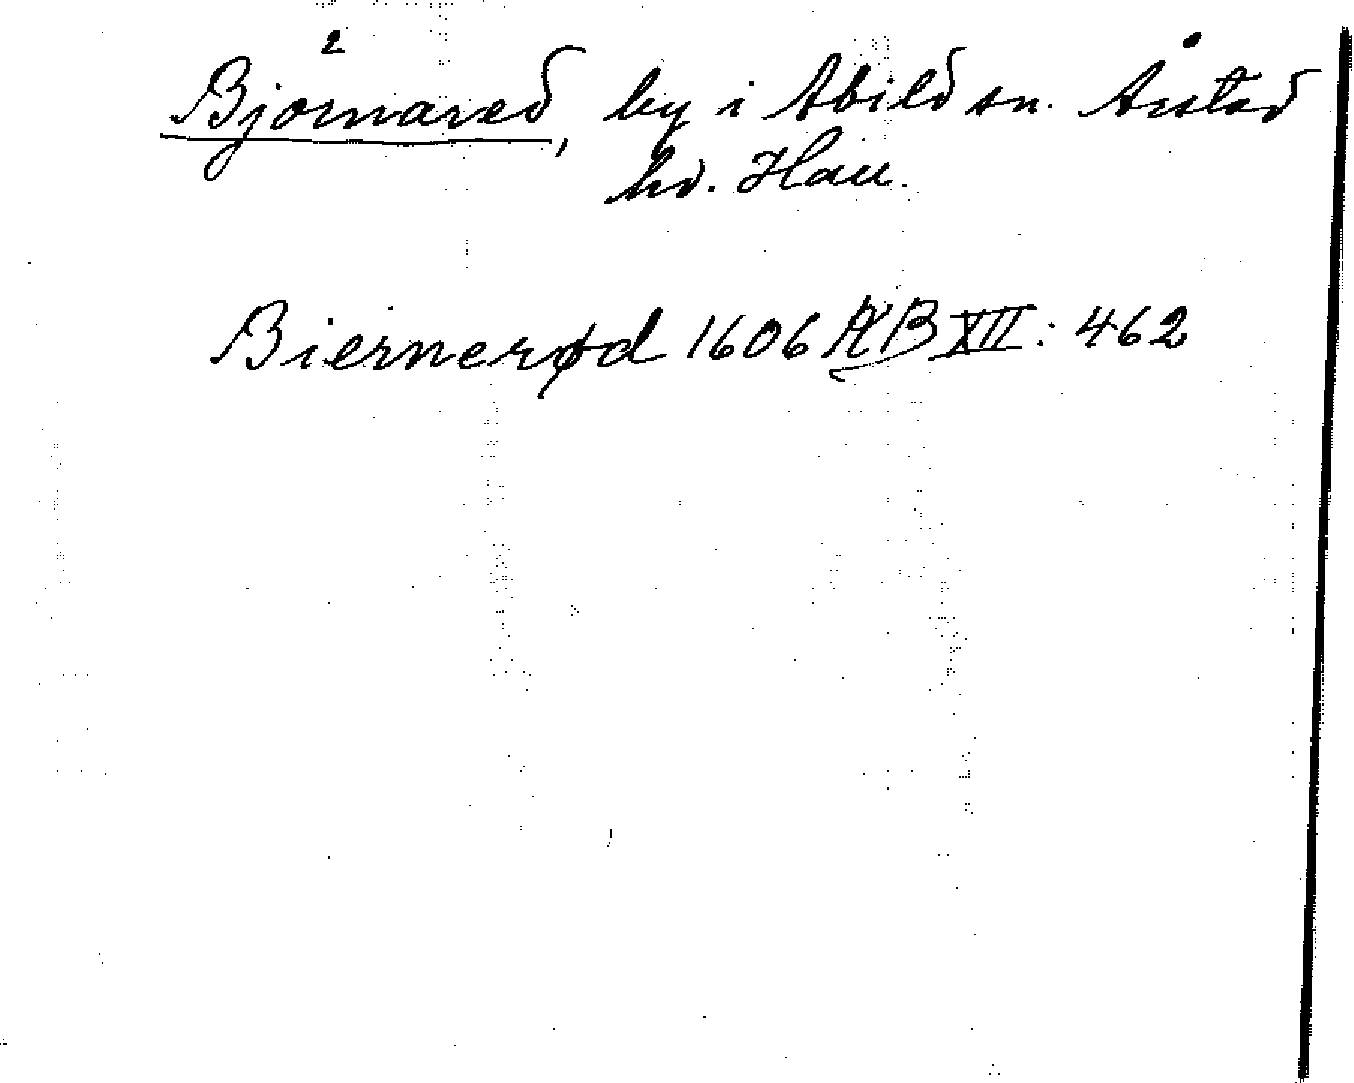 Björnared, by i Abild sn. Årstad
hd. Hall.
Biernerød 1606 ÆB XII: 462